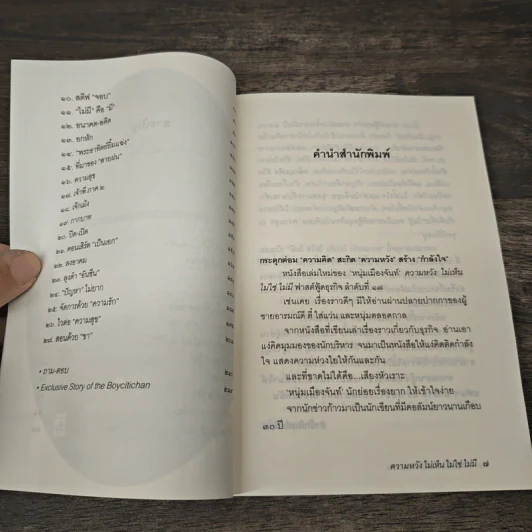 ๑๐. สตีฟ "จอบ"
๑๑. "ไม่มี" คือ "มี"
๑๒. อนาคต-อดีต
๑๓. อกหัก
๑๔. "พระอาทิตย์ยิ้มแฉ่ง"
๑๕. ที่มาของ "สายฝน"
๑๖. ความสุข
๑๗. เจ้าพี่ ภาค ๒
๑๘. เจ๊กมั้ง
๑๙. กากบาท
๒๐. ปิด-เปิด
๒๑. คอนเสิร์ต "เป็นเอก"
๒๒. ลงอาคม
๒๓. ลูงดำ "ยับขึ้น"
๒๔. "ปัญหา" ไม่ยาก
๒๕. จัดการด้วย "ความรัก"
๒๖. ไวต่อ "ความสุข"
๒๘. สอนด้วย "ขา"
• ถาม-ตอบ
• Exclusive Story of the Boycitichan
คำนำสำนักพิมพ์
กระตุกต่อม "ความคิด" สะกิด "ความหวัง" สร้าง "กำลังใจ"
หนังสือเล่มใหม่ของ 'หนุ่มเมืองจันท์' ความหวัง ไม่เห็น
ไม่ใช่ ไม่มี ฟาสต์ฟู้ดธุรกิจ ลำดับที่ ๑๗
เช่นเคย เรื่องราวดีๆ มีให้อ่านผ่านปลายปากกาของผู้
ชายอารมณ์ดี ตี๋ ใส่แว่น และหนุ่มตลอดกาล
จากหนังสือที่เขียนเล่าเรื่องราวเกี่ยวกับธุรกิจ อ่านเอา
แง่คิดมุมมองของนักบริหาร จนมาเป็นหนังสือให้แง่คิดติดกำลัง
ใจ แสดงความห่วงใยให้กันและกัน
และที่ขาดไม่ได้คือ...เสียงหัวเราะ
'หนุ่มเมืองจันท์' นักย่อยเรื่องยาก ให้เข้าใจง่าย
จากนักข่าวก้าวมาเป็นนักเขียนที่มีคอลัมน์ยาวนานเกือบ
๓๐ ปี
ความหวัง ไม่เห็น ไม่ใช่ ไม่มี ๗